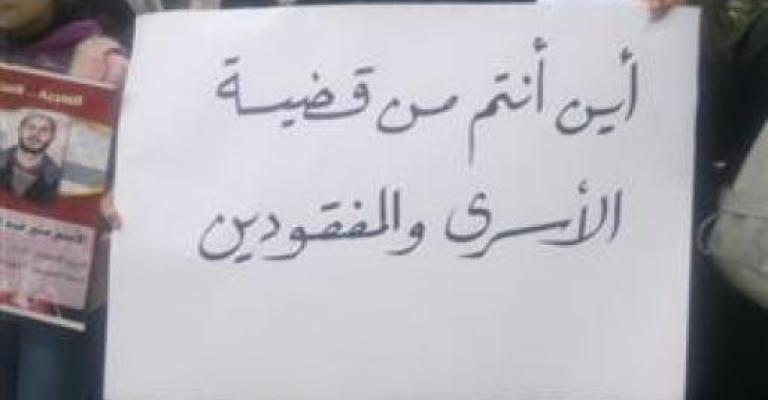 أين أنتم من قضية
الأسرى والمفقودين
الحرية ..